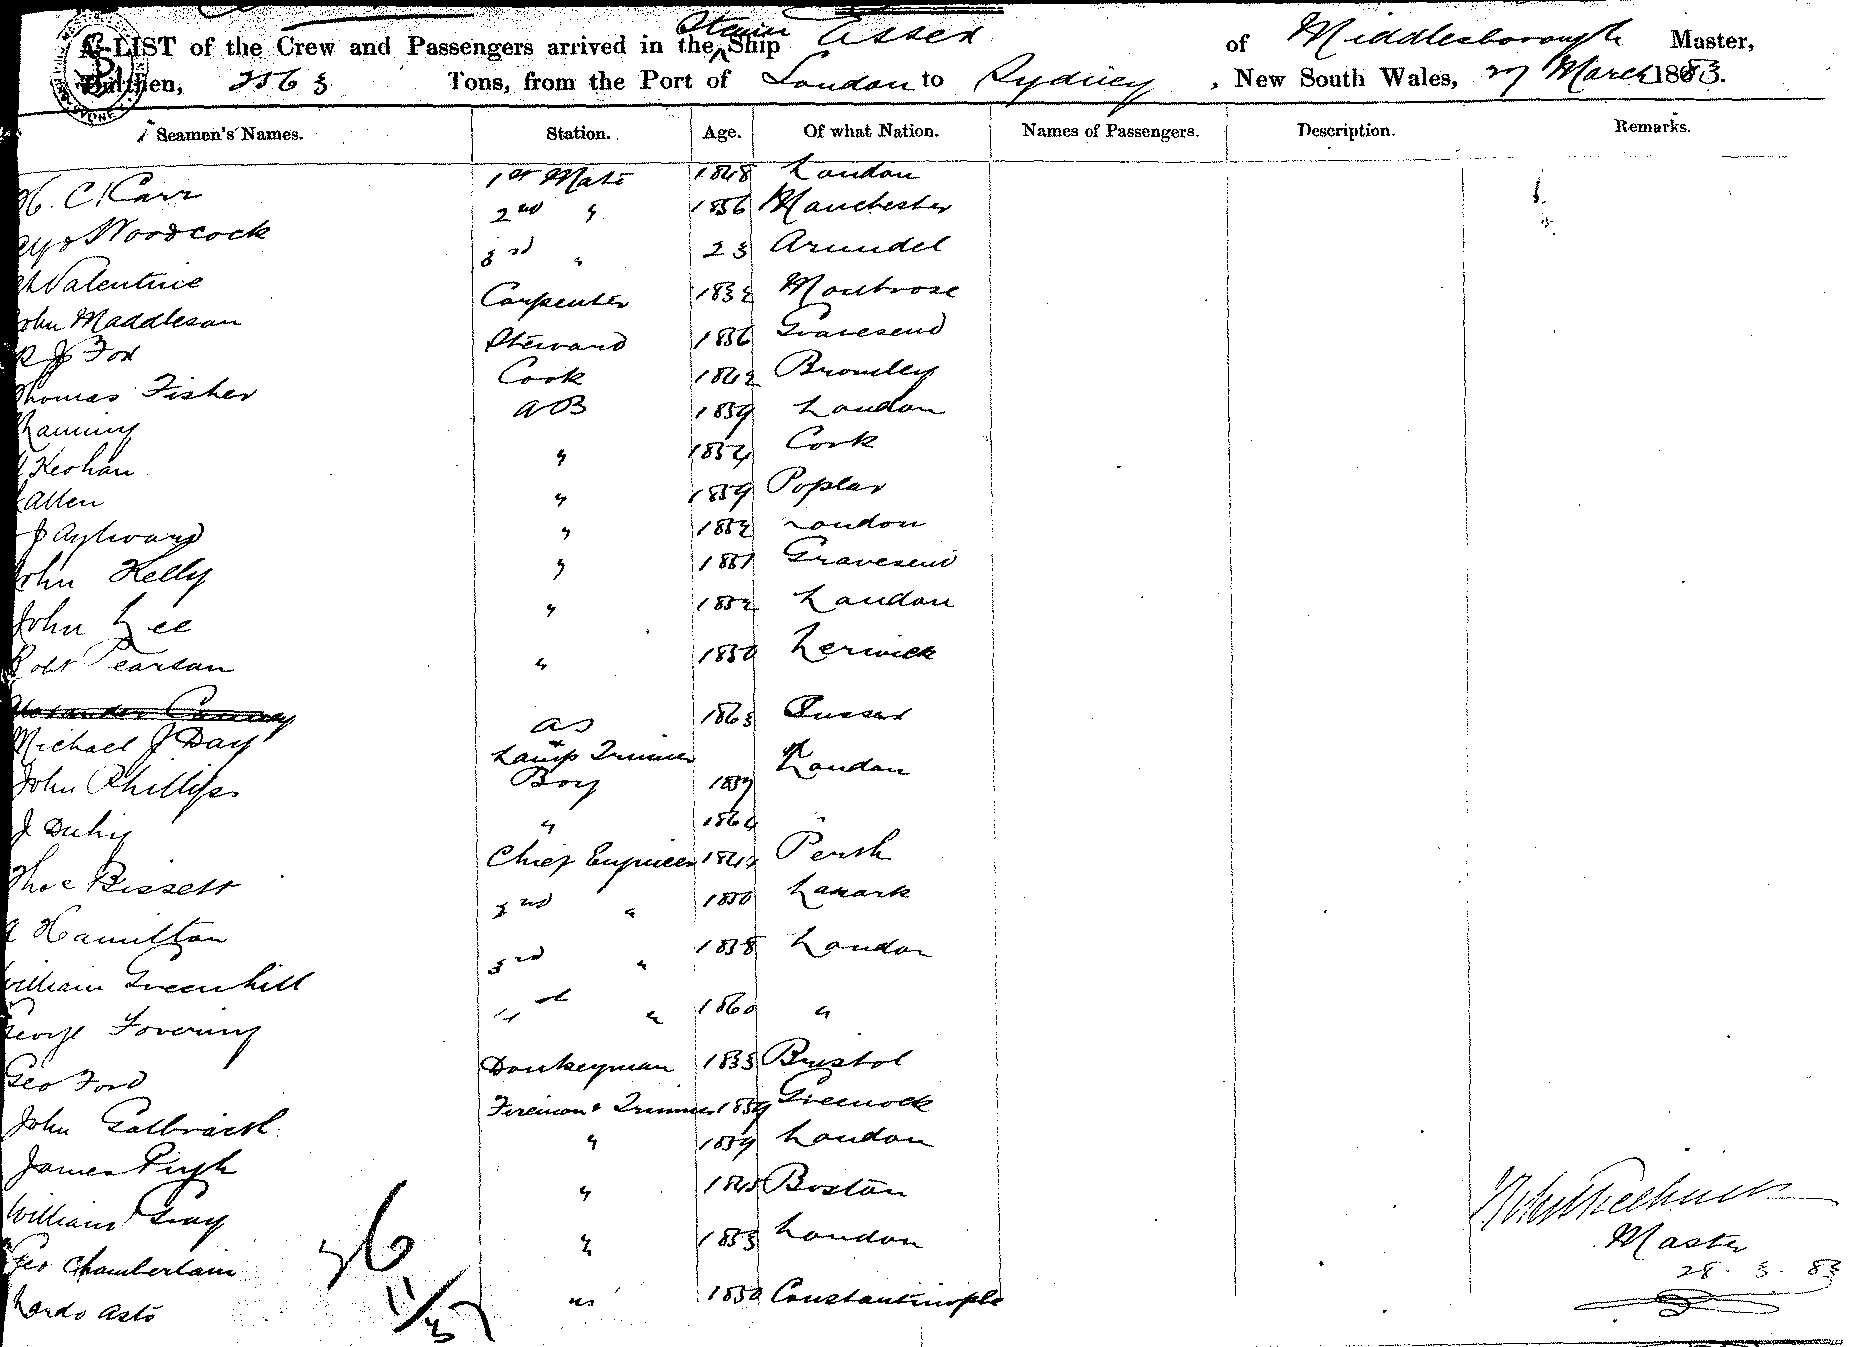 A LIST of the Crew and Passengers arrived in the Steam Ship Essex of Middlesborough Master,
Burthen, 2563 Tons, from the Port of London to Sydney, New South Wales, 27 March 1883.
Seamen's Names. Station. Age. Of what Nation. Names of Passengers. Description. Remarks.
H. C. Carr 1st Mate 1848 London
Woodcock 2nd " 1856 Manchester
Valentine 3rd " 23 Arundel
John Maddleson Carpenter 1832 Montrose
R J Fox Steward 1856 Gravesend
Thomas Fisher Cook 1842 Bromley
AB 1859 London
Keohan " 1854 Cork
Allen " 1859 Poplar
J Aylward " 1852 London
John Kelly " 1851 Gravesend
John Lee " 1852 London
Robt Pearson " 1850 Lerwick
Alexander OS 1863 Sussex
Michael J Day Lamp Trimmer
John Phillips Boy 1859 London
J " 1864 "
Thos Bissett Chief Engineer 1842 Perth
A Hamilton 2nd " 1850 Lanark
William Greenhill 3rd " 1838 London
George Lovering 4th " 1860 "
Geo Ford Donkeyman 1833 Bristol
John Galbraith Fireman & Trimmer 1859 Greenock
James Pugh " 1859 London
William Gray " 1845 Boston
Geo Chamberlain " 1853 London
" 1850 Constantinople
36
Master
28. 3. 83